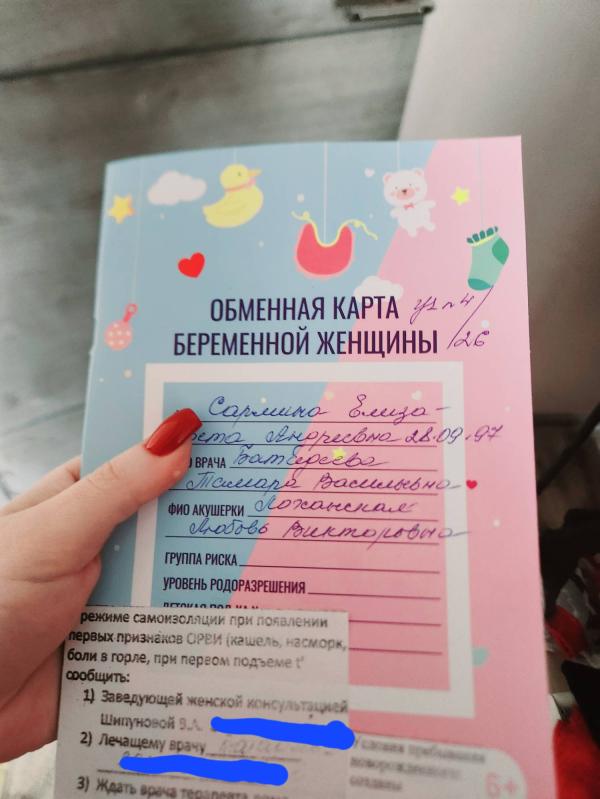 ОБМЕННАЯ КАРТА
БЕРЕМЕННОЙ ЖЕНЩИНЫ /26
Сармина Елиза-
Андреевна 28.09.97
ВРАЧА
Тамара Васильевна
ФИО АКУШЕРКИ Лоханская
Любовь Викторовна
ГРУППА РИСКА
УРОВЕНЬ РОДОРАЗРЕШЕНИЯ
режиме самоизоляции при появлении
первых признаков ОРВИ (кашель, насморк,
боли в горле, при первом подъеме t°
сообщить:
1) Заведующей женской консультацией
Шипуновой В.А.
2) Лечащему врачу
3) Ждать врача терапевта
Условия пребывания
новорожденного
созданы
6+